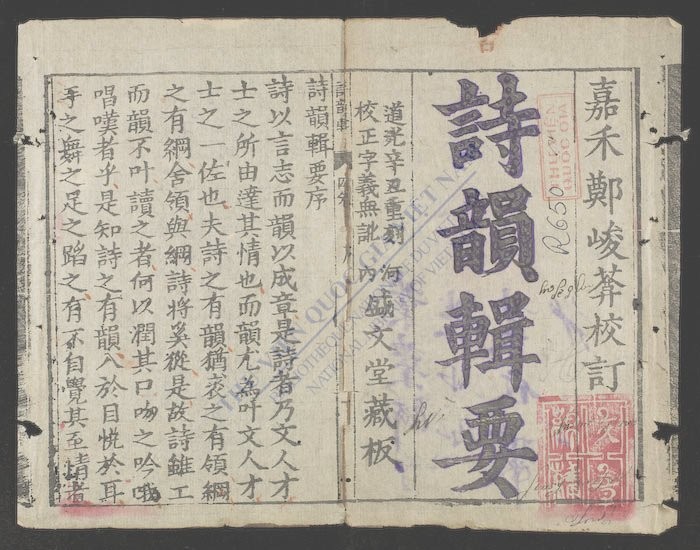 嘉禾鄭峻葊校訂
詩韻輯要
道光辛丑重刻
校正字義無訛
河內
盛文堂藏板
詩韻輯要序
詩以言志而韻以成章是詩者乃文人才
士之所由達其情也而韻尤為叶文人才
士之一佐也夫詩之有韻猶裘之有領綱
之有綱舍領與綱詩將奚從是故詩雖工
而韻不叶讀之者何以潤其口吻之吟哦
唱嘆者乎是知詩之有韻入於目悅於耳
手之舞之足之蹈之有不自覺其至情者
THƯ VIỆN
QUỐC GIA
R650
THƯ VIỆN QUỐC GIA VIỆT NAM